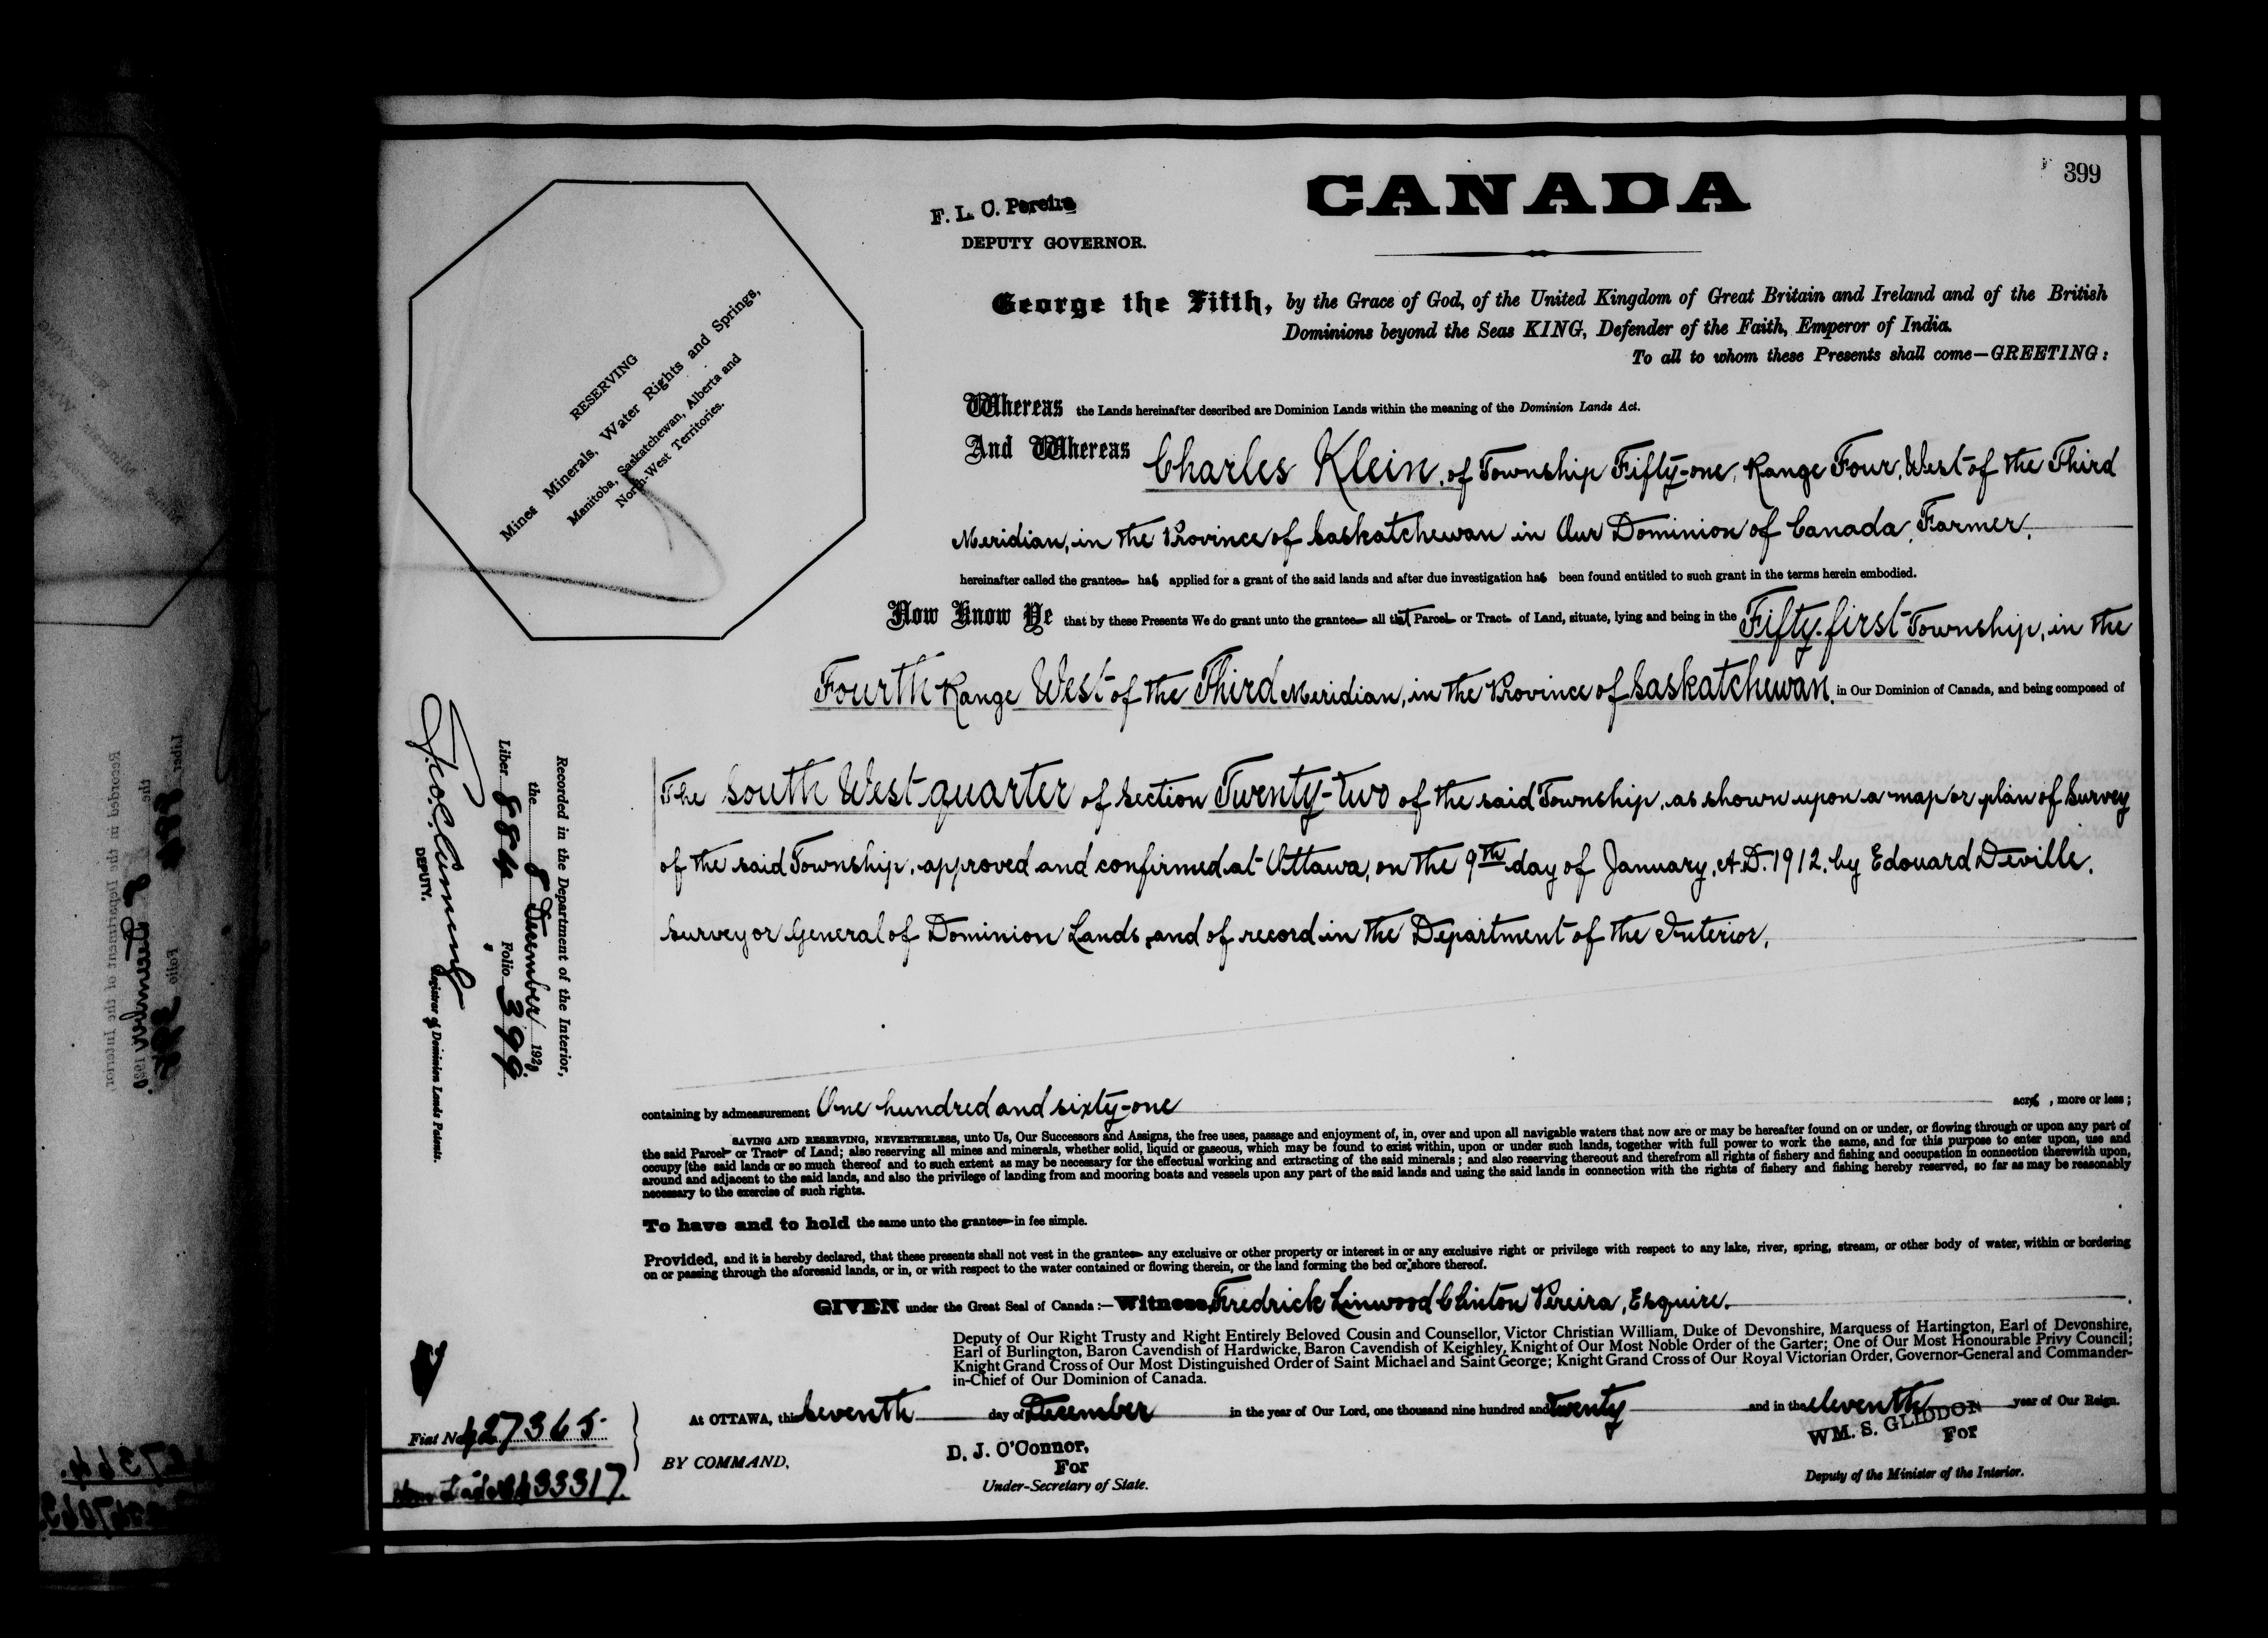 399
CANADA
F. L. C. Pereira
DEPUTY GOVERNOR.
George the Fifth, by the Grace of God, of the United Kingdom of Great Britain and Ireland and of the British
Dominions beyond the Seas KING, Defender of the Faith, Emperor of India.
To all to whom these Presents shall come—GREETING:
RESERVING
Mines Minerals, Water Rights and Springs,
Manitoba, Saskatchewan, Alberta and
North-West Territories.
Whereas the Lands hereinafter described are Dominion Lands within the meaning of the Dominion Lands Act.
And Whereas Charles Klein, of Township Fifty-one, Range Four, West of the Third
Meridian, in the Province of Saskatchewan in Our Dominion of Canada, Farmer,
hereinafter called the grantee has applied for a grant of the said lands and after due investigation has been found entitled to such grant in the terms herein embodied.
Now Know Ye that by these Presents We do grant unto the grantee all that Parcel or Tract of Land, situate, lying and being in the Fifty-first Township, in the
Fourth Range West of the Third Meridian, in the Province of Saskatchewan, in Our Dominion of Canada, and being composed of
The South West quarter of Section Twenty-two of the said Township, as shown upon a map or plan of Survey
of the said Township, approved and confirmed at Ottawa, on the 9th day of January, A.D. 1912, by Edouard Deville,
Surveyor General of Dominion Lands, and of record in the Department of the Interior.
Recorded in the Department of the Interior,
the 8 December 1920.
Liber 884 Folio 399
DEPUTY. Registrar of Dominion Lands Patents.
containing by admeasurement One hundred and sixty-one acres, more or less;
SAVING AND RESERVING, NEVERTHELESS, unto Us, Our Successors and Assigns, the free uses, passage and enjoyment of, in, over and upon all navigable waters that now are or may be hereafter found on or under, or flowing through or upon any part of
the said Parcel or Tract of Land; also reserving all mines and minerals, whether solid, liquid or gaseous, which may be found to exist within, upon or under such lands, together with full power to work the same, and for this purpose to enter upon, use and
occupy the said lands or so much thereof and to such extent as may be necessary for the effectual working and extracting of the said minerals; and also reserving thereout and therefrom all rights of fishery and fishing and occupation in connection therewith upon,
around and adjacent to the said lands, and also the privilege of landing from and mooring boats and vessels upon any part of the said lands and using the said lands in connection with the rights of fishery and fishing hereby reserved, so far as may be reasonably
necessary to the exercise of such rights.
To have and to hold the same unto the grantee in fee simple.
Provided, and it is hereby declared, that these presents shall not vest in the grantee any exclusive or other property or interest in or any exclusive right or privilege with respect to any lake, river, spring, stream, or other body of water, within or bordering
on or passing through the aforesaid lands, or in, or with respect to the water contained or flowing therein, or the land forming the bed or shore thereof.
GIVEN under the Great Seal of Canada:—Witness, Fredrick Linwood Clinton Pereira, Esquire.
Deputy of Our Right Trusty and Right Entirely Beloved Cousin and Counsellor, Victor Christian William, Duke of Devonshire, Marquess of Hartington, Earl of Devonshire,
Earl of Burlington, Baron Cavendish of Hardwicke, Baron Cavendish of Keighley, Knight of Our Most Noble Order of the Garter; One of Our Most Honourable Privy Council;
Knight Grand Cross of Our Most Distinguished Order of Saint Michael and Saint George; Knight Grand Cross of Our Royal Victorian Order, Governor-General and Commander-
in-Chief of Our Dominion of Canada.
At OTTAWA, this Seventh day of December in the year of Our Lord, one thousand nine hundred and twenty and in the eleventh year of Our Reign.
Fiat No. 427365
33317.
BY COMMAND,
D. J. O'Connor,
For
Under-Secretary of State.
WM. S. GLIDDON
For
Deputy of the Minister of the Interior.